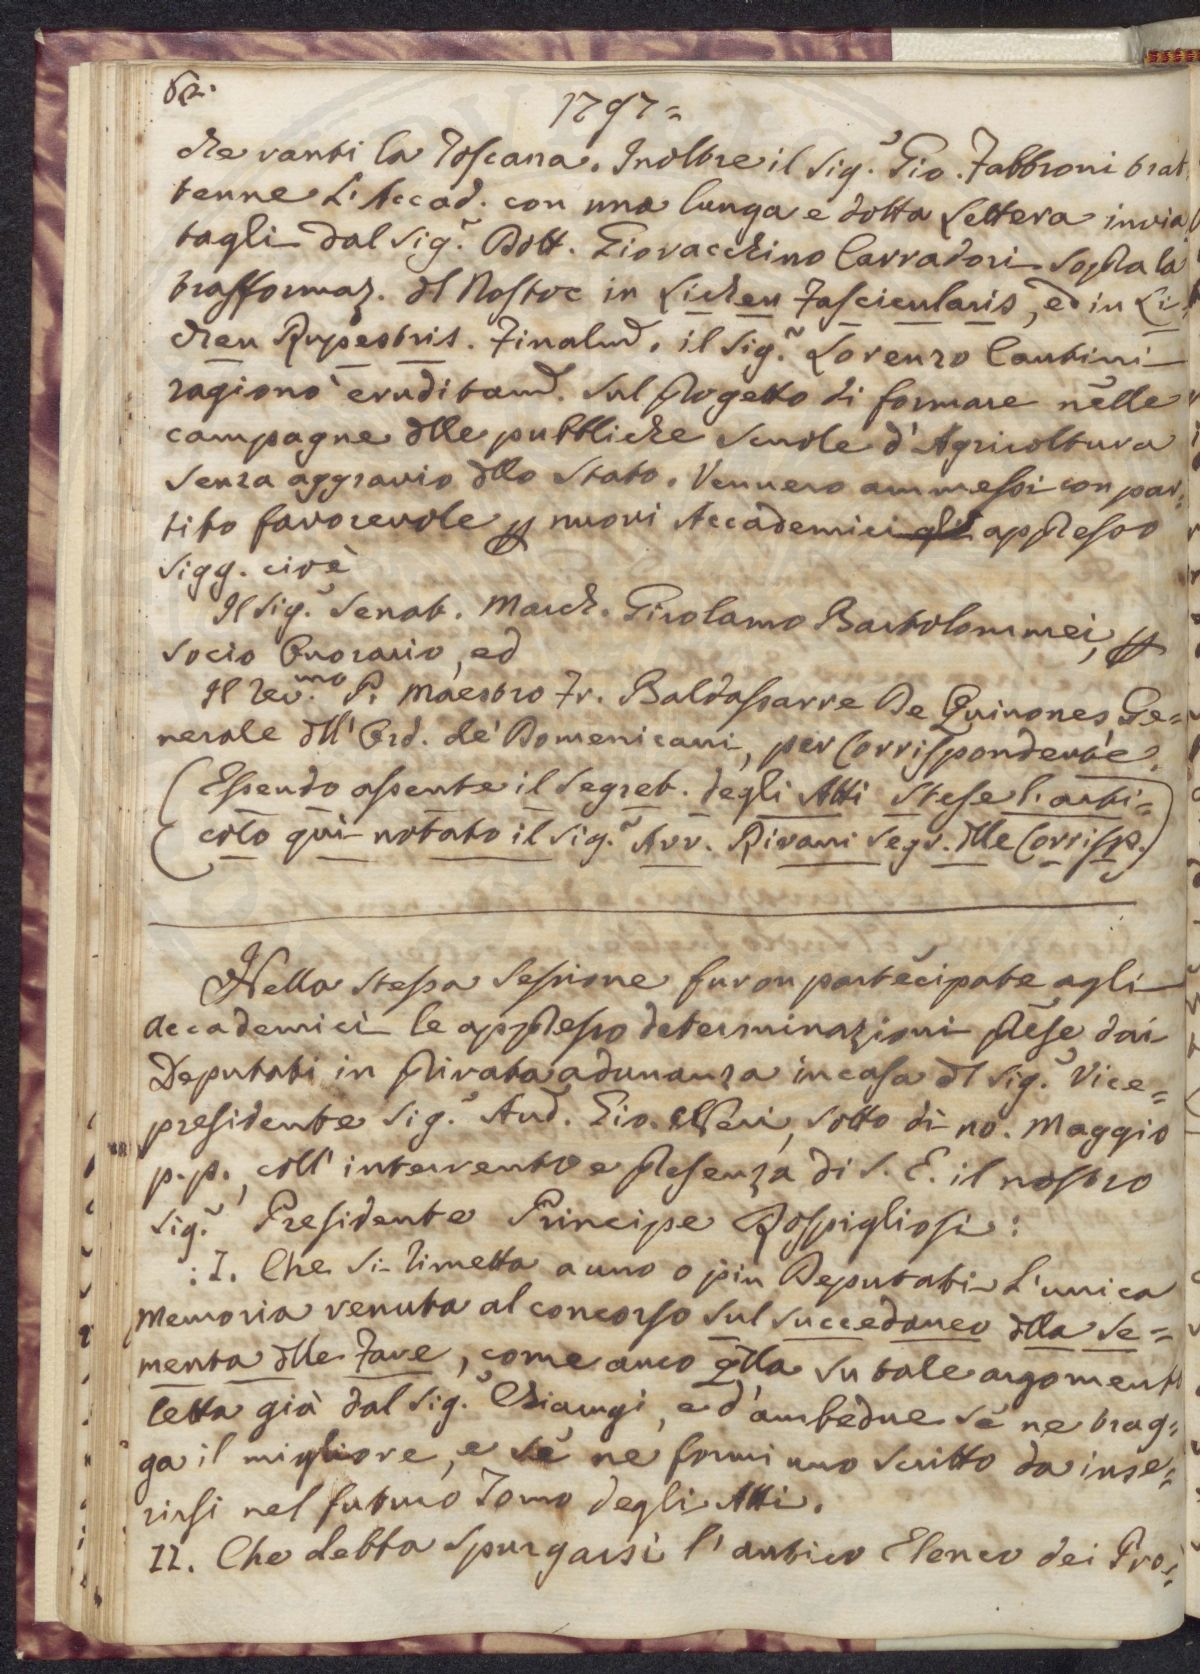 62.
1797=
che vanti la Toscana. Inoltre il Sig.r Gio. Fabbroni trat
tenne L'Accad. con una lunga e dotta Lettera invia
tagli dal Sig.r Dott. Giovacchino Carradori sopra la
trasformaz. del Nostoc in Lichen Fascicularis, ed in Li-
chen Rupestris. Finalmte. il Sig.r Lorenzo Cantini
ragionò eruditamte. sul progetto di formare nelle
campagne delle pubbliche scuole d'Agricoltura
senza aggravio dello Stato. Vennero ammessi con par=
tito favorevole per nuovi Accademici appresso
Sigg. cioè
Il Sig.r Senat. March. Girolamo Bartolommei, per
Socio Onorario, ed
Il Rev.mo P. Maestro Fr. Baldassarre De Quinones Ge=
nerale dell'Ord. de' Domenicani, per Corrispondente.
(Essendo assente il Segret. degli Atti stese l'arti=
colo quì notato il Sig.r Avv. Rivani Segr. delle Corrisp.)
Nella stessa Sessione furon partecipate agli
Accademici le appresso determinazioni prese dai
Deputati in privata adunanza in casa del Sig.r Vice=
presidente Sig.r Aud. Gio. Neri, sotto dì 10. Maggio
p.p., coll'intervento e presenza di S. E. il nostro
Sig.r Presidente Principe Rospigliosi:
: I. Che si rimetta a uno o più Deputati L'unica
Memoria venuta al concorso sul succedaneo della se=
menta delle Fave, come anco quella su tale argomento
letta già dal Sig.r Chiarugi, e d'ambedue se ne trag=
ga il migliore, e se ne formi uno scritto da inse=
rirsi nel futuro Tomo degli Atti.
II. Che debba spurgarsi l'antico Elenco dei Pro=